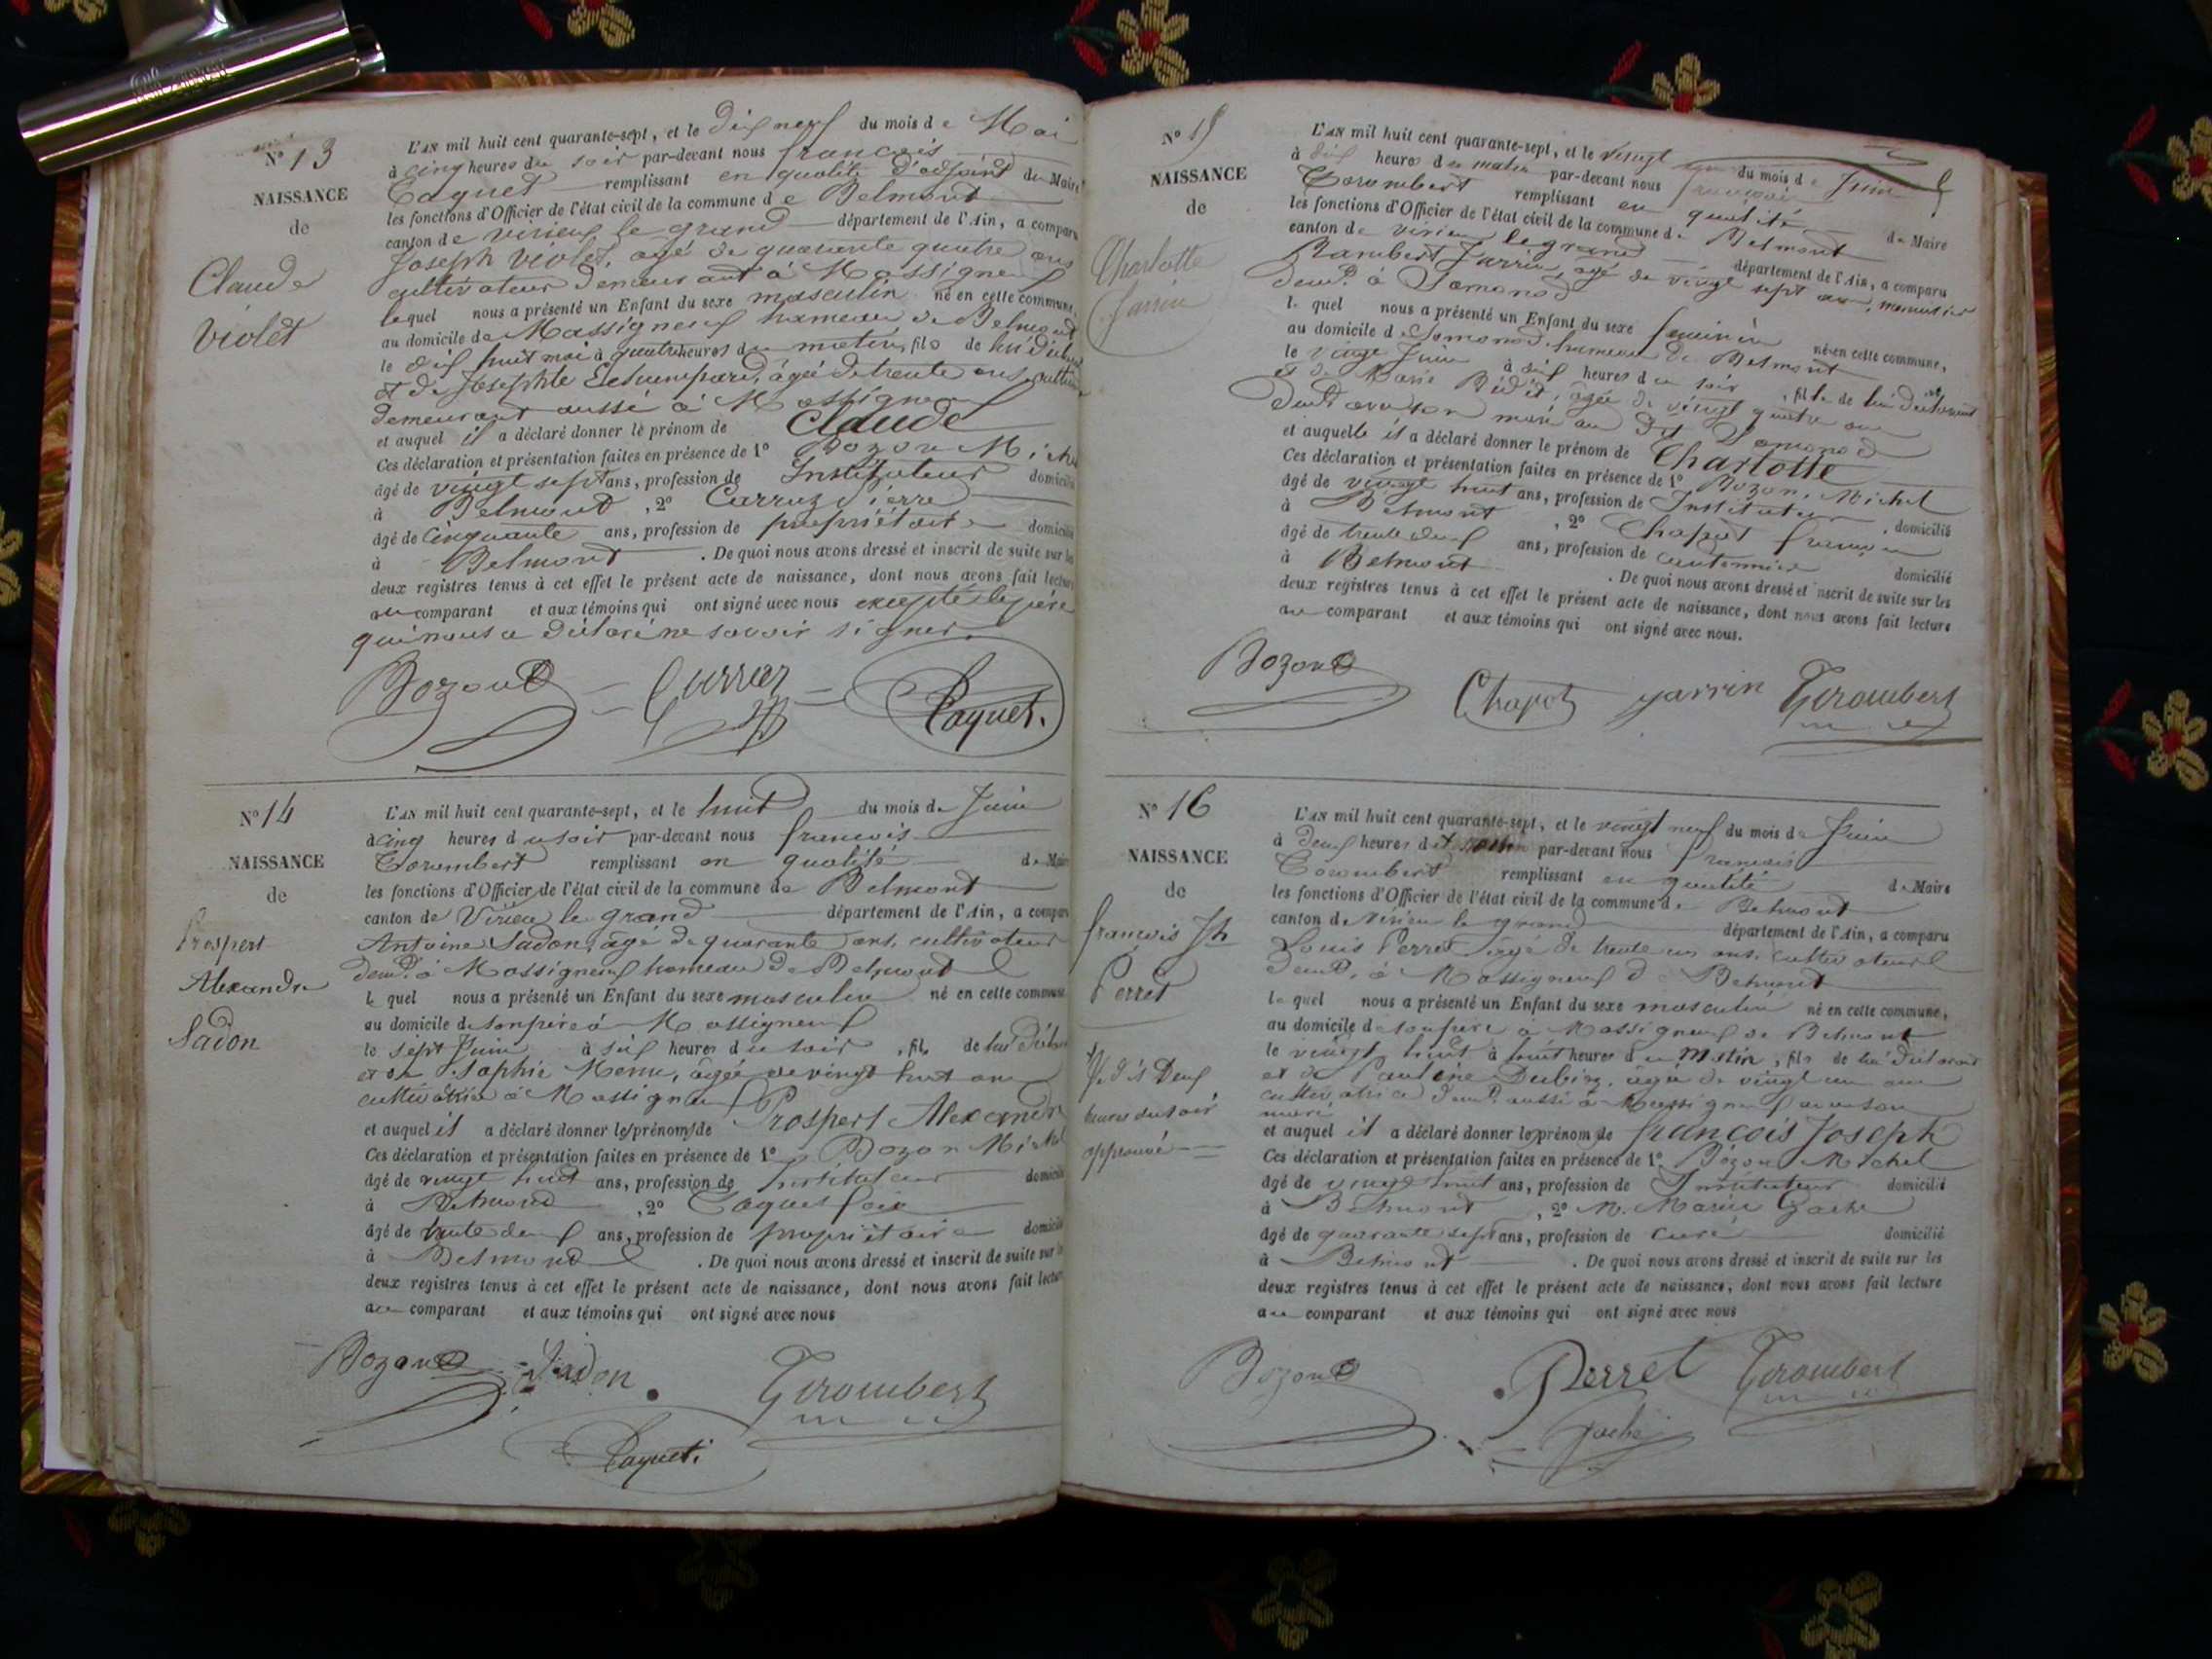 N° 13
NAISSANCE
de
Claude
Violet
L'AN mil huit cent quarante-sept, et le dix neuf du mois de Mai
à cinq heures du soir par-devant nous francois
Caquet remplissant en qualité d'adjoint du Maire
les fonctions d'Officier de l'état civil de la commune de Belmont
canton de virieux le grand département de l'Ain, a comparu
Joseph Violet, agé de quarante quatre ans
cultivateur demeurant à Massigneux
lequel nous a présenté un Enfant du sexe masculin né en cette commune,
au domicile de Massigneux hameau de Belmont
le dix huit mai à quatre heures du matin, fils de lui déclarant
et de Josephte âgée de trente ans
demeurant aussi à Massigneux
et auquel il a déclaré donner le prénom de Claude
Ces déclaration et présentation faites en présence de 1° Bozon Michel
âgé de vingt sept ans, profession de Instituteur domicilié
à Belmont, 2° Carraz Pierre
âgé de cinquante ans, profession de propriétaire domicilié
à Belmont. De quoi nous avons dressé et inscrit de suite sur les
deux registres tenus à cet effet le présent acte de naissance, dont nous avons fait lecture
au comparant et aux témoins qui ont signé avec nous excepté le père
qui nous a déclaré ne savoir signer.
Bozon Carraz Caquet.
N° 14
NAISSANCE
de
Prospert
Alexandre
Sadon
L'AN mil huit cent quarante-sept, et le huit du mois de Juin
à cinq heures du soir par-devant nous francois
Corombert remplissant en qualité de Maire
les fonctions d'Officier de l'état civil de la commune de Belmont
canton de Virieu le grand département de l'Ain, a comparu
Antoine Sadon, agé de quarante ans, cultivateur
demt. à Massigneux hameau de Belmont
le quel nous a présenté un Enfant du sexe masculin né en cette commune
au domicile de son père à Massigneux
le sept Juin à six heures du soir, fils de lui
et de Sophie Memu, âgée de vingt huit ans
cultivatrice à Massigneux
et auquel il a déclaré donner les prénoms de Prospert Alexandre
Ces déclaration et présentation faites en présence de 1° Bozon Michel
âgé de vingt huit ans, profession de Instituteur domicilié
à Belmond, 2° Caquet
âgé de trente deux ans, profession de propriétaire domicilié
à Belmond. De quoi nous avons dressé et inscrit de suite sur les
deux registres tenus à cet effet le présent acte de naissance, dont nous avons fait lecture
au comparant et aux témoins qui ont signé avec nous
Bozon Sadon Corombert
Caquet.
N° 15
NAISSANCE
de
Charlotte
Jarrin
L'AN mil huit cent quarante-sept, et le vingt du mois de Juin
à dix heures du matin par-devant nous francois
Corombert remplissant en qualité de Maire
les fonctions d'Officier de l'état civil de la commune de Belmont
canton de virieu le grand département de l'Ain, a comparu
Rambert Jarrin, agé de vingt sept ans, menuisier
demt. à Samonod
le quel nous a présenté un Enfant du sexe feminin né en cette commune,
au domicile de Samonod hameau de Belmont
le vingt Juin à six heures du soir, fille de lui déclarant
et de Marie Bidet, âgée de vingt quatre ans
demt. avec son mari au dit Samonod
et auquelle il a déclaré donner le prénom de Charlotte
Ces déclaration et présentation faites en présence de 1° Bozon, Michel
âgé de vingt huit ans, profession de Instituteur, domicilié
à Belmont, 2° Chapot francois
âgé de trente deux ans, profession de cantonnier domicilié
à Belmont. De quoi nous avons dressé et inscrit de suite sur les
deux registres tenus à cet effet le présent acte de naissance, dont nous avons fait lecture
au comparant et aux témoins qui ont signé avec nous.
Bozon Chapot jarrin Corombert
N° 16
NAISSANCE
de
francois Jh
Perret
dis Deux
heures du soir
approuvé
L'AN mil huit cent quarante-sept, et le vingt neuf du mois de Juin
à deux heures par-devant nous francois
Corombert remplissant en qualité de Maire
les fonctions d'Officier de l'état civil de la commune de Belmont
canton de virieu le grand département de l'Ain, a comparu
Louis Perret agé de trente un ans, cultivateur
demt. à Massigneux de Belmont
le quel nous a présenté un Enfant du sexe masculin né en cette commune,
au domicile de son père à Massigneux de Belmont
le vingt huit à huit heures du matin, fils de lui déclarant
et de Pauline Dubiez, âgée de vingt un ans
cultivatrice demt. aussi à Massigneux avec son
mari
et auquel il a déclaré donner les prénom de francois Joseph
Ces déclaration et présentation faites en présence de 1° Bozon Michel
âgé de vingt huit ans, profession de Instituteur domicilié
à Belmont, 2° M. Marin Gache
âgé de quarante sept ans, profession de curé domicilié
à Belmont. De quoi nous avons dressé et inscrit de suite sur les
deux registres tenus à cet effet le présent acte de naissance, dont nous avons fait lecture
au comparant et aux témoins qui ont signé avec nous
Bozon Perret Corombert
Gache